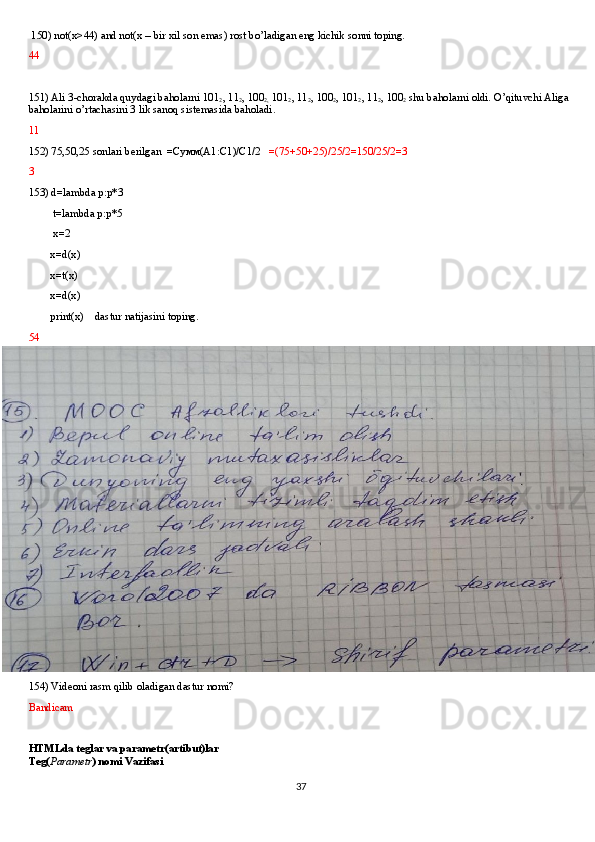 150) not(x>44) and not(x – bir xil son emas) rost bo’ladigan eng kichik sonni toping.
44
151) Ali 3-chorakda quydagi baholarni 101₂, 11₂, 100₂, 101₂, 11₂, 100₂, 101₂, 11₂, 100₂ shu baholarni oldi. O’qituvchi Aliga
baholarini o’rtachasini 3 lik sanoq sistemasida baholadi.
11
152) 75,50,25 sonlari berilgan =Сумм(A1:C1)/C1/2 =(75+50+25)/25/2=150/25/2=3
3
153) d=lambda p:p*3
t=lambda p:p*5
x=2
x=d(x)
x=t(x)
x=d(x)
print(x) dastur natijasini toping.
54
15. MOOC Afzalliklari tushdi.
1) Bepul online ta'lim olish
2) Zamonaviy mutaxasisliklar
3) Dunyoning eng yaxshi õg'ituvchilari.
4) Materiallarni tizimli taqdim etish
5) Online ta'limning aralash shakli.
6) Erkin dars jadvali.
7) Interfaollik
16 Word2007 da RIBBON tasmasi
Bor.
17 Win+ctr+D → Shirif parametri.
154) Videoni rasm qilib oladigan dastur nomi?
Bandicam
HTMLda teglar va parametr(artibut)lar
Teg(Parametr) nomi Vazifasi
37